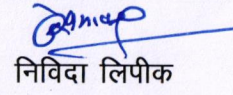 निविदा लिपीक